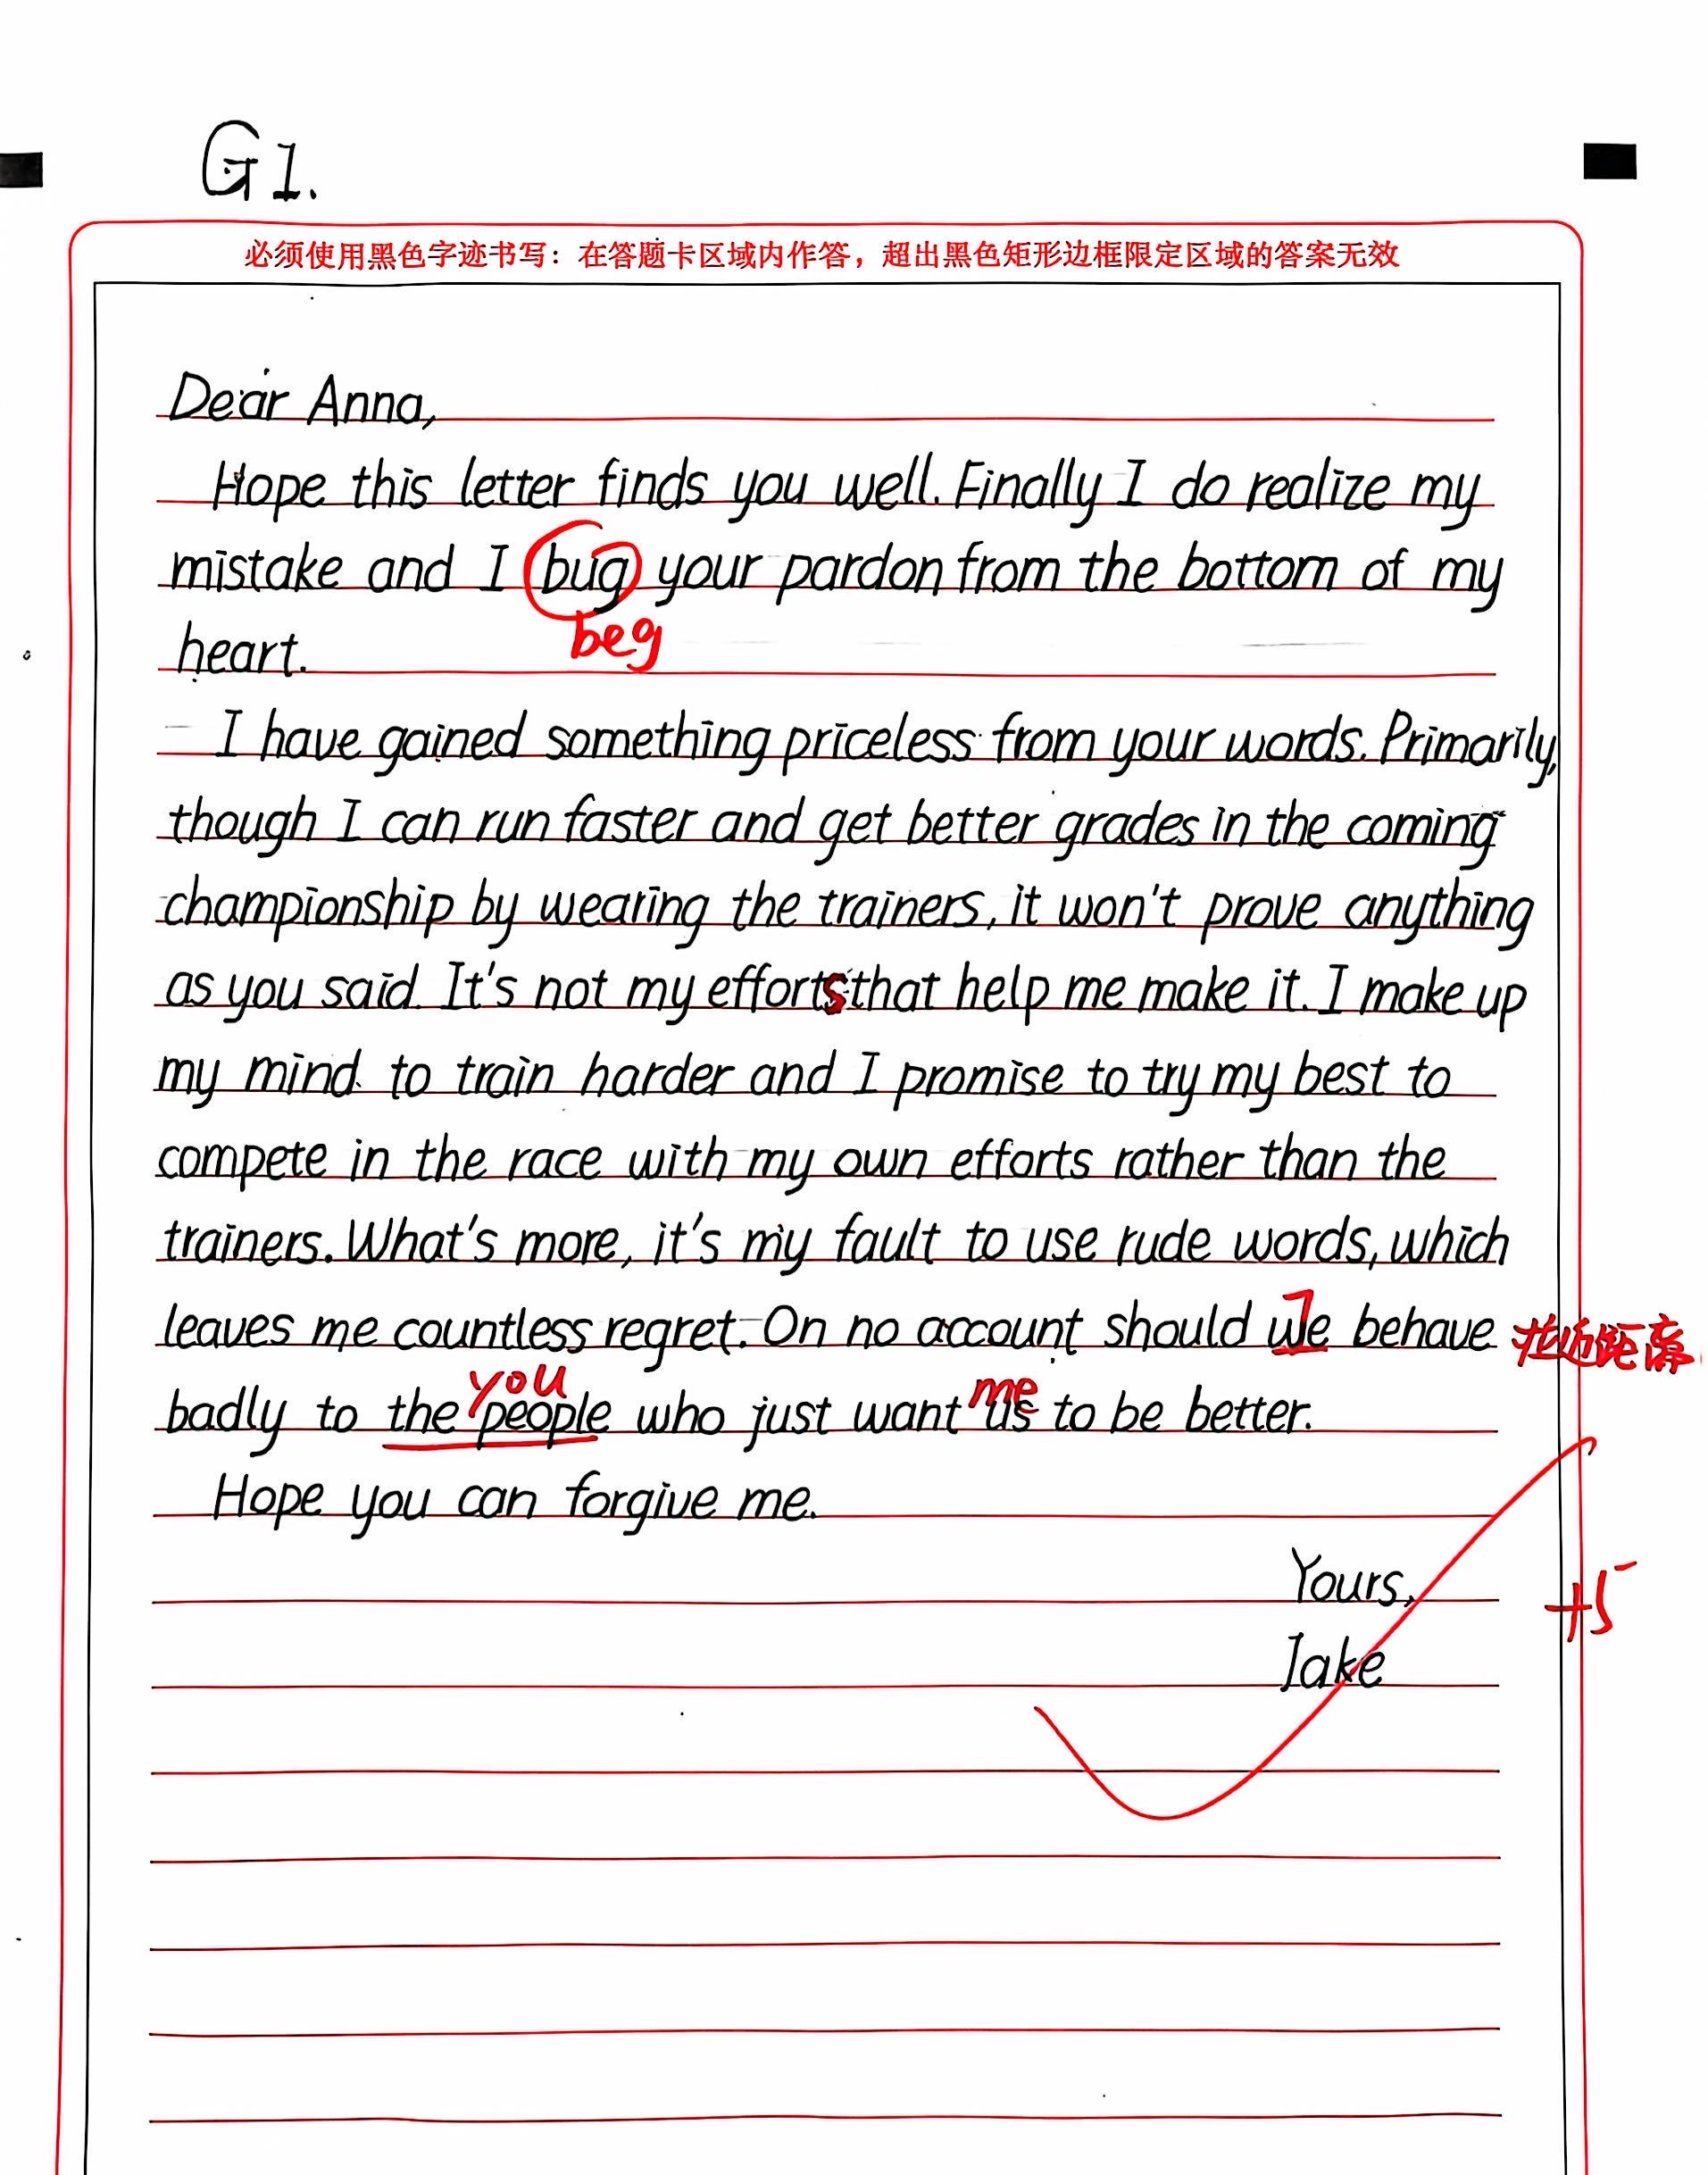 G1.
必须使用黑色字迹书写：在答题卡区域内作答，超出黑色矩形边框限定区域的答案无效
Dear Anna,
Hope this letter finds you well. Finally I do realize my
mistake and I bug your pardon from the bottom of my
beg
heart.
I have gained something priceless from your words. Primarily,
though I can run faster and get better grades in the coming
championship by wearing the trainers, it won't prove anything
as you said. It's not my efforts that help me make it. I make up
my mind to train harder and I promise to try my best to
compete in the race with my own efforts rather than the
trainers. What's more, it's my fault to use rude words, which
I
leaves me countless regret. On no account should we behave 拉近距离
you me
badly to the people who just want us to be better.
Hope you can forgive me.
Yours,
+5
Jake